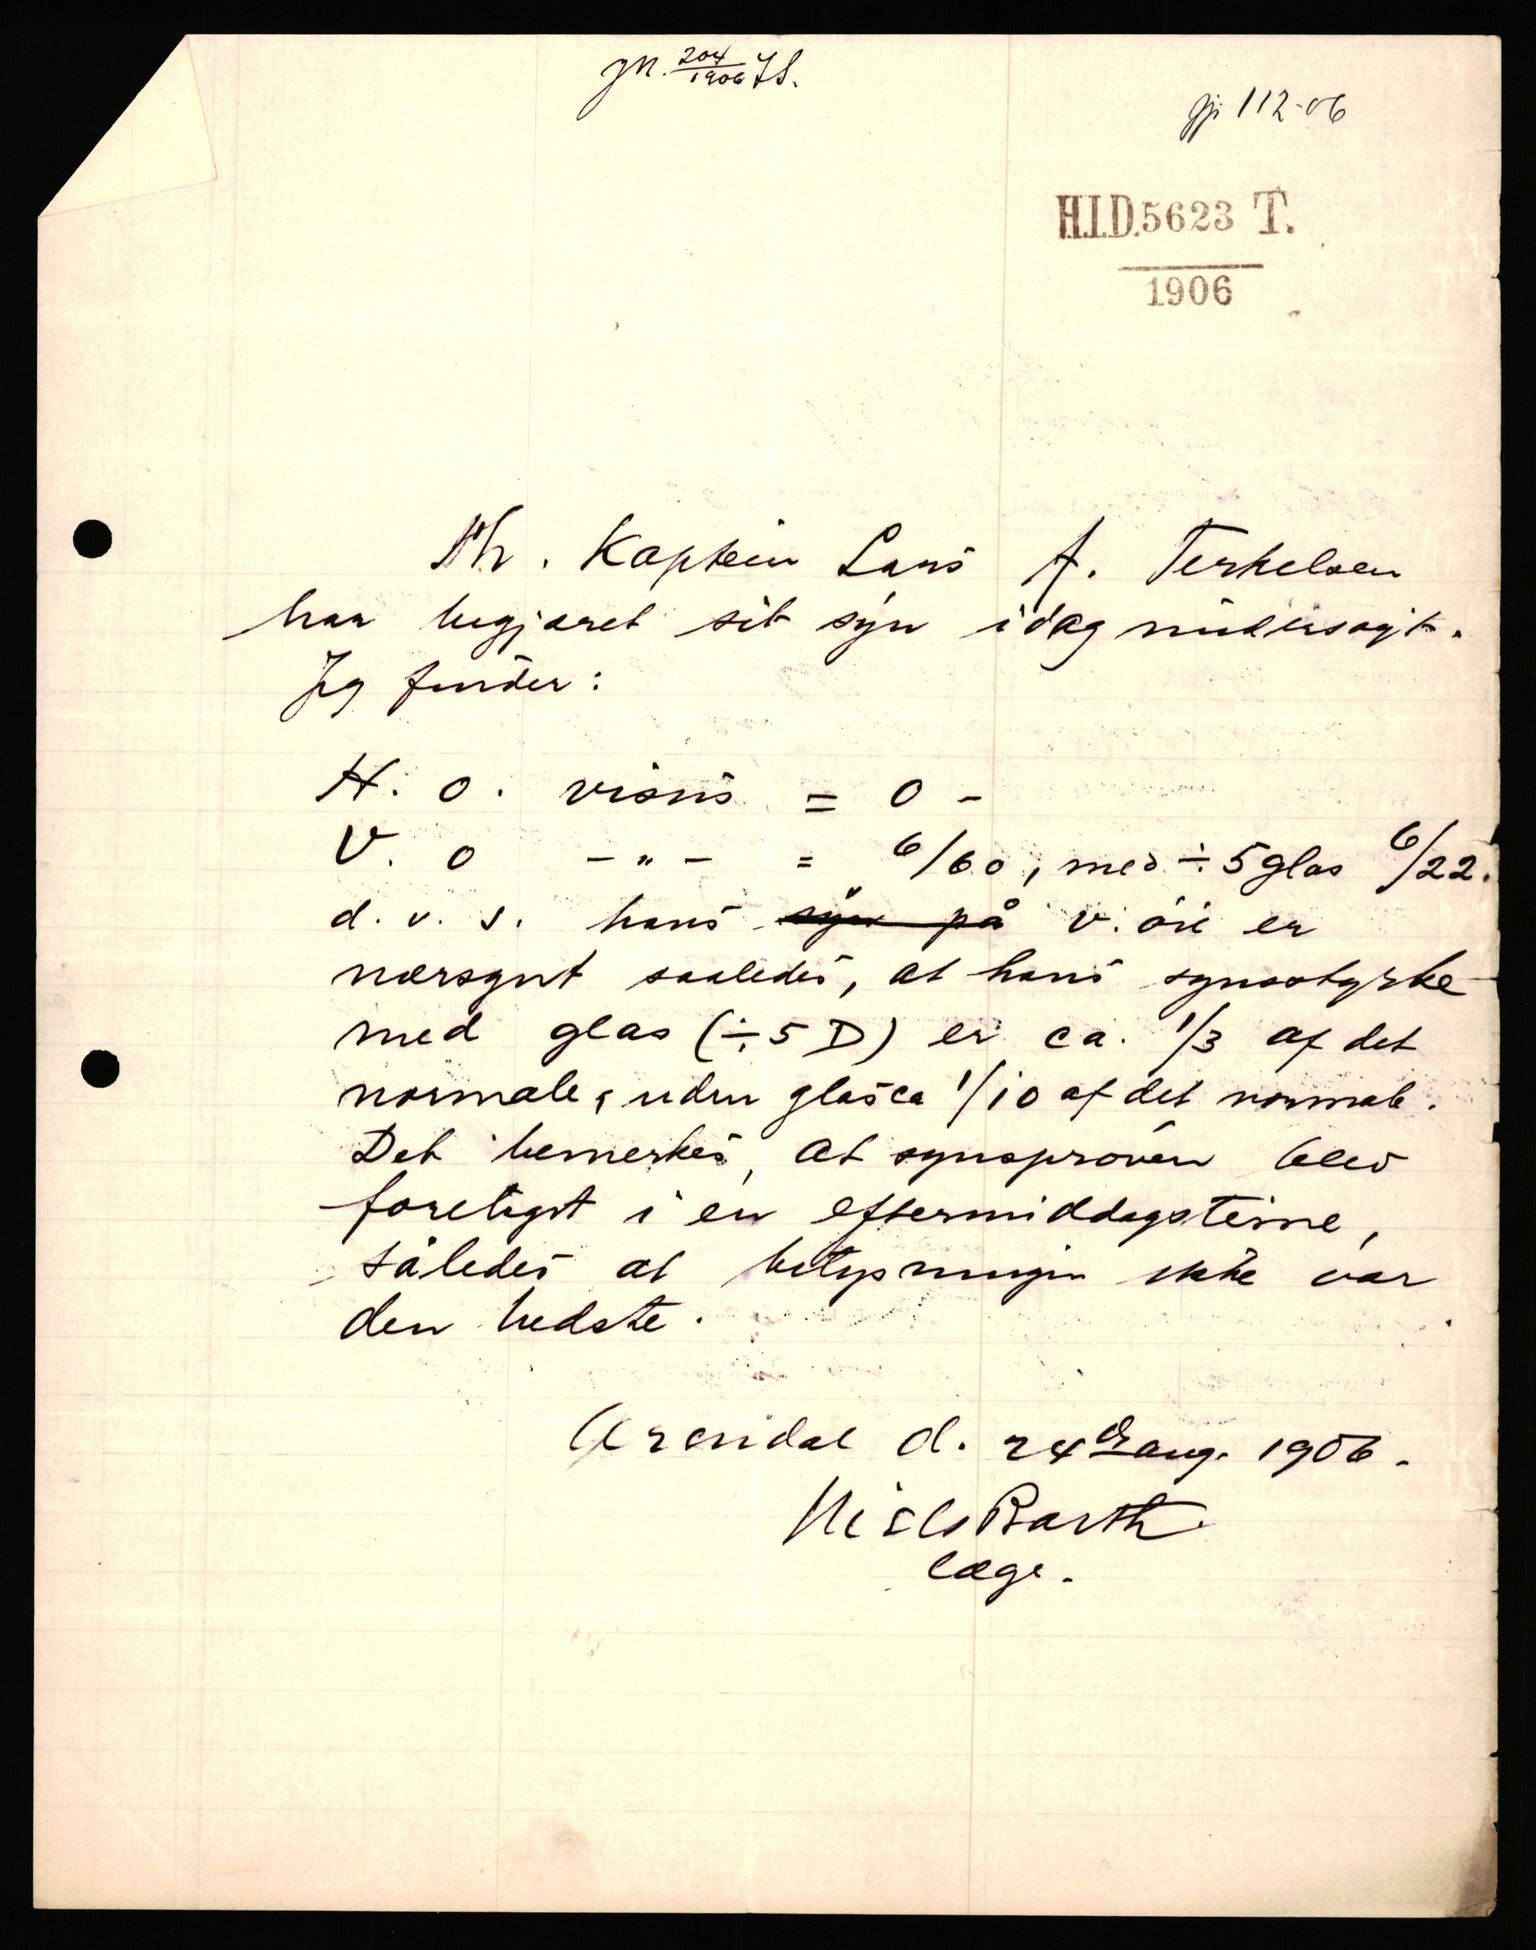 jn. 204/1906 J.S.
jn 112-06
H.I.D. 5623 T.
1906
Hr. Kaptein Lars A. Terkelsen
har begjæret sit syn idag undersøgt.
Jeg finder:
H. o. visus = 0 -
V. o -"- = 6/60, med ÷5 glas 6/22.
d. v. s. hans syn på v. öie er
nærsynt saaledes, at hans synsstyrke
med glas (÷5 D) er ca. 1/3 af det
normale, uden glas ca 1/10 af det normale.
Det bemerkes, at synsprøven blev
foretaget i en eftermiddagstime,
således at belysningen ikke var
den bedste.
Arendal d. 24de aug. 1906.
Niels Barth
læge.